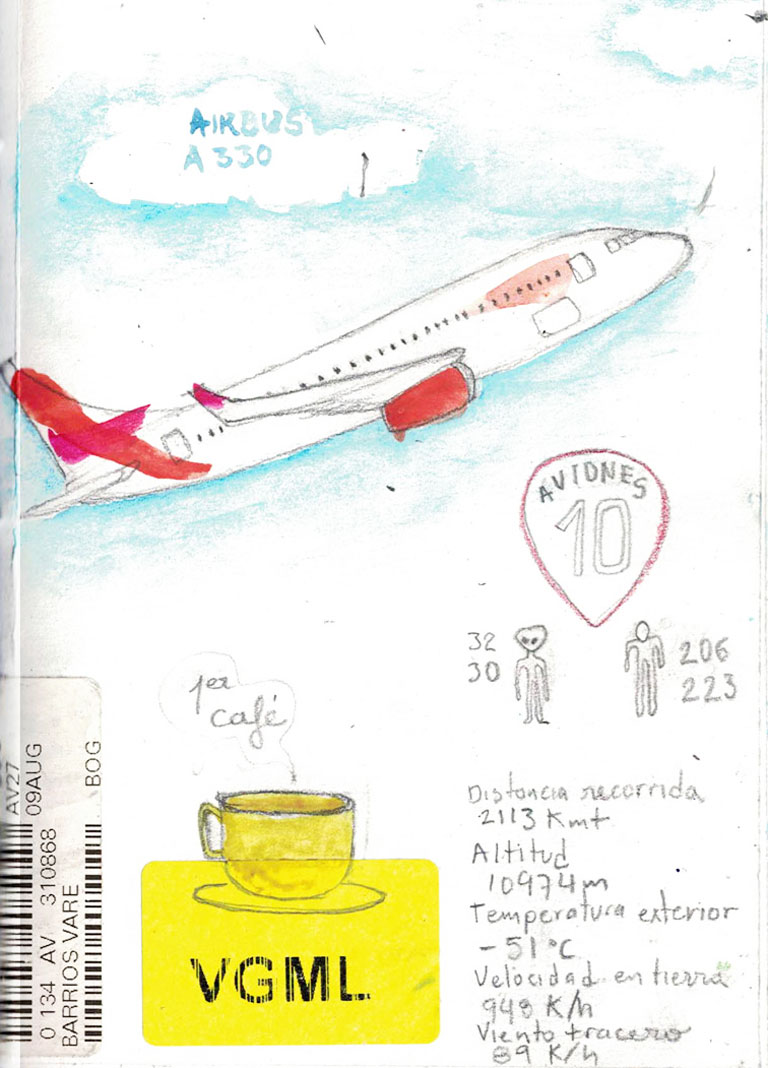 AIRBUS
A330
AVIONES
10
32
30
206
223
1er
café
VGML
AV27
09AUG
BOG
0 134 AV 310868
BARRIOS VARE
Distancia recorrida
2113 Kmt
Altitud
10974m
Temperatura exterior
-51°C
Velocidad en tierra
949 K/h
Viento tracero
89 K/h